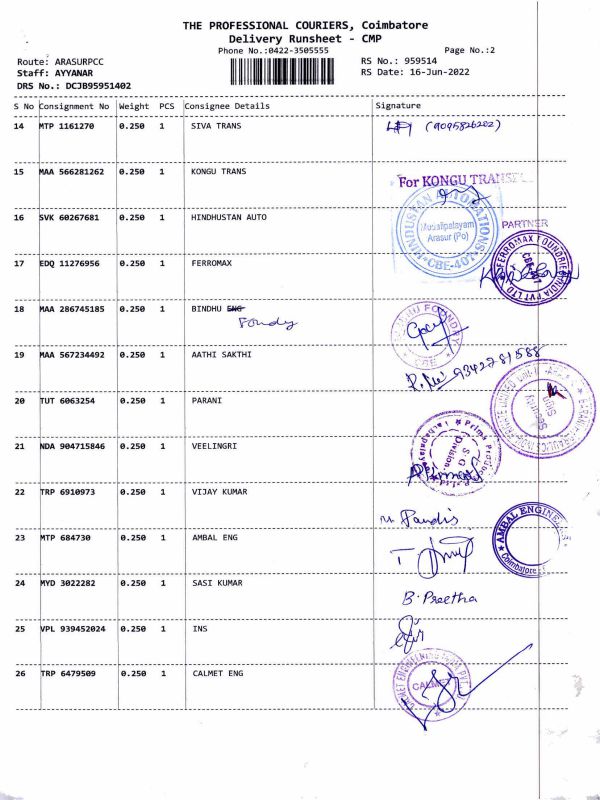 THE PROFESSIONAL COURIERS, Coimbatore
Delivery Runsheet - CMP
Phone No.:0422-3505555 Page No.:2
Route: ARASURPCC RS No.: 959514
Staff: AYYANAR RS Date: 16-Jun-2022
DRS No.: DCJB95951402
S No Consignment No Weight PCS Consignee Details Signature
14 MTP 1161270 0.250 1 SIVA TRANS (9095826202)
15 MAA 566281262 0.250 1 KONGU TRANS
For KONGU TRANS
16 SVK 60267681 0.250 1 HINDHUSTAN AUTO
HINDUSTAN AUTOMATIONS
Mudalipalayam
Arasur (Po)
CBE-407
PARTNER
17 EDQ 11276956 0.250 1 FERROMAX
FERROMAX FOUNDRIES INDIA PVT LTD
CBE
18 MAA 286745185 0.250 1 BINDHU ENG
Foundy
FOUNDRY
CBE
19 MAA 567234492 0.250 1 AATHI SAKTHI
9342781588
20 TUT 6063254 0.250 1 PARANI
Security
Sign
21 NDA 904715846 0.250 1 VEELINGRI
Division
22 TRP 6910973 0.250 1 VIJAY KUMAR
23 MTP 684730 0.250 1 AMBAL ENG
AMBAL ENGINE
Coimbatore
24 MYD 3022282 0.250 1 SASI KUMAR
B. Preetha
25 VPL 939452024 0.250 1 INS
26 TRP 6479509 0.250 1 CALMET ENG
CALMET